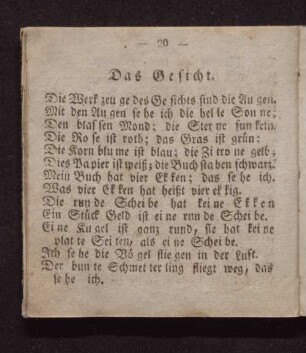 — 20 —
Das Gesicht.
Die Werk zeu ge des Ge sichts sind die Au gen.
Mit den Au gen se he ich die hel le Son ne;
Den blas sen Mond; die Ster ne fun keln.
Die Ro se ist roth; das Gras ist grün;
Die Korn blu me ist blau; die Zi tro ne gelb;
Dies Papier ist weiß; die Buch sta ben schwarz.
Mein Buch hat vier Ek ken; das se he ich.
Was vier Ek ken hat heißt vier ek kig.
Die run de Schei be hat kei ne Ek ken
Ein Stück Geld ist ei ne run de Schei be.
Ei ne Ku gel ist ganz rund, sie hat kei ne
plat te Sei ten, als ei ne Schei be.
Ich se he die Vö gel flie gen in der Luft.
Der bun te Schmet ter ling fliegt weg, das
se he ich.